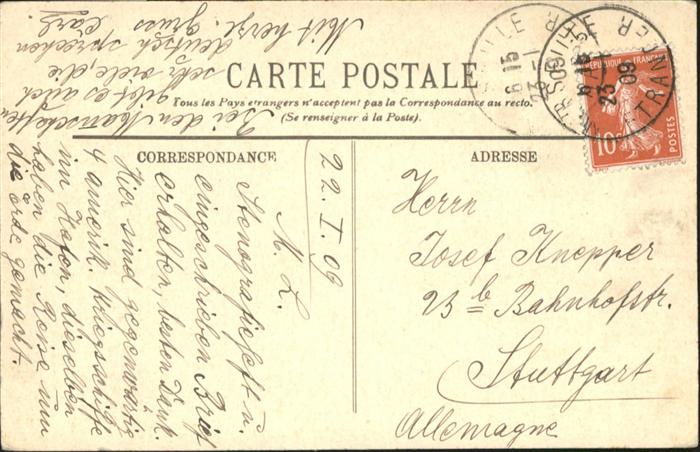 CARTE POSTALE
Tous les Pays etrangers n'acceptent pas la Correspondance au recto.
(Se renseigner à la Poste).
CORRESPONDANCE
22. I. 09
M. L.
Stenografieheft u.
eingeschrieben Brief
erhalten, besten Dank.
Hier sind gegenwärtig
4 amerik. Kriegsschiffe
im Hafen, dieselben
haben die Reise um
die Erde gemacht.
Bei den Mannschaften
gibt es auch
sehr viele, die
deutsch sprechen
Mit herzl. Gruss
Carl
ADRESSE
Herrn
Josef Knepper
23 b Bahnhofstr.
Stuttgart
Allemagne
REPUBLIQUE FRANÇAISE
10c
POSTES
8 15
23
09
ETRANGER
8 15
23-1